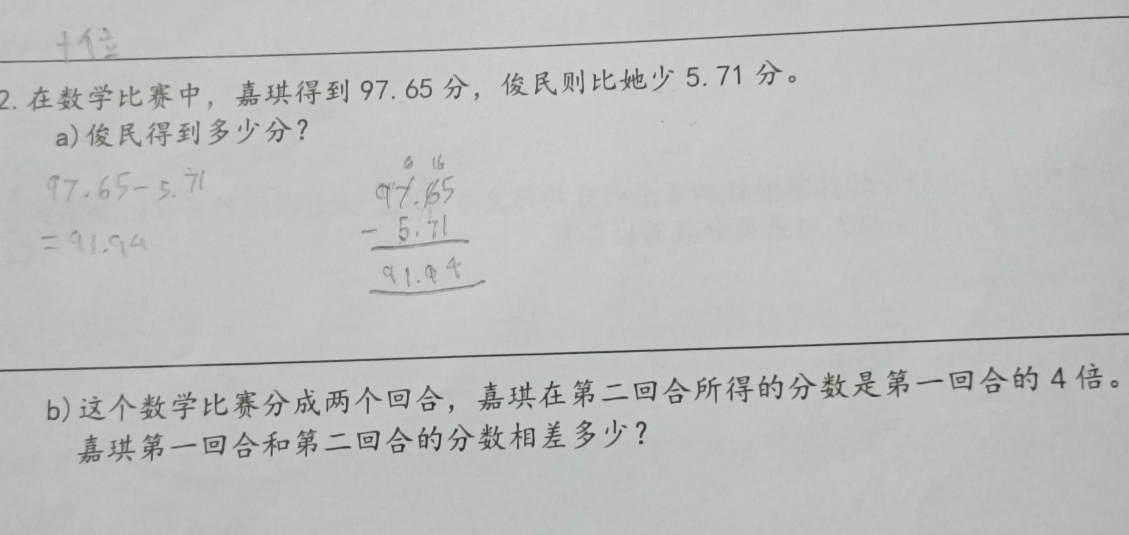 十位
2. 在数学比赛中，嘉琪得到 97.65 分，俊民则比她少 5.71 分。
a) 俊民得到多少分？
97.65 - 5.71
= 91.94
6 16
97.65
- 5.71
91.94
b) 这个数学比赛分成两个回合，嘉琪在第二回合所得的分数是第一回合的 4 倍。
嘉琪第一回合和第二回合的分数相差多少？